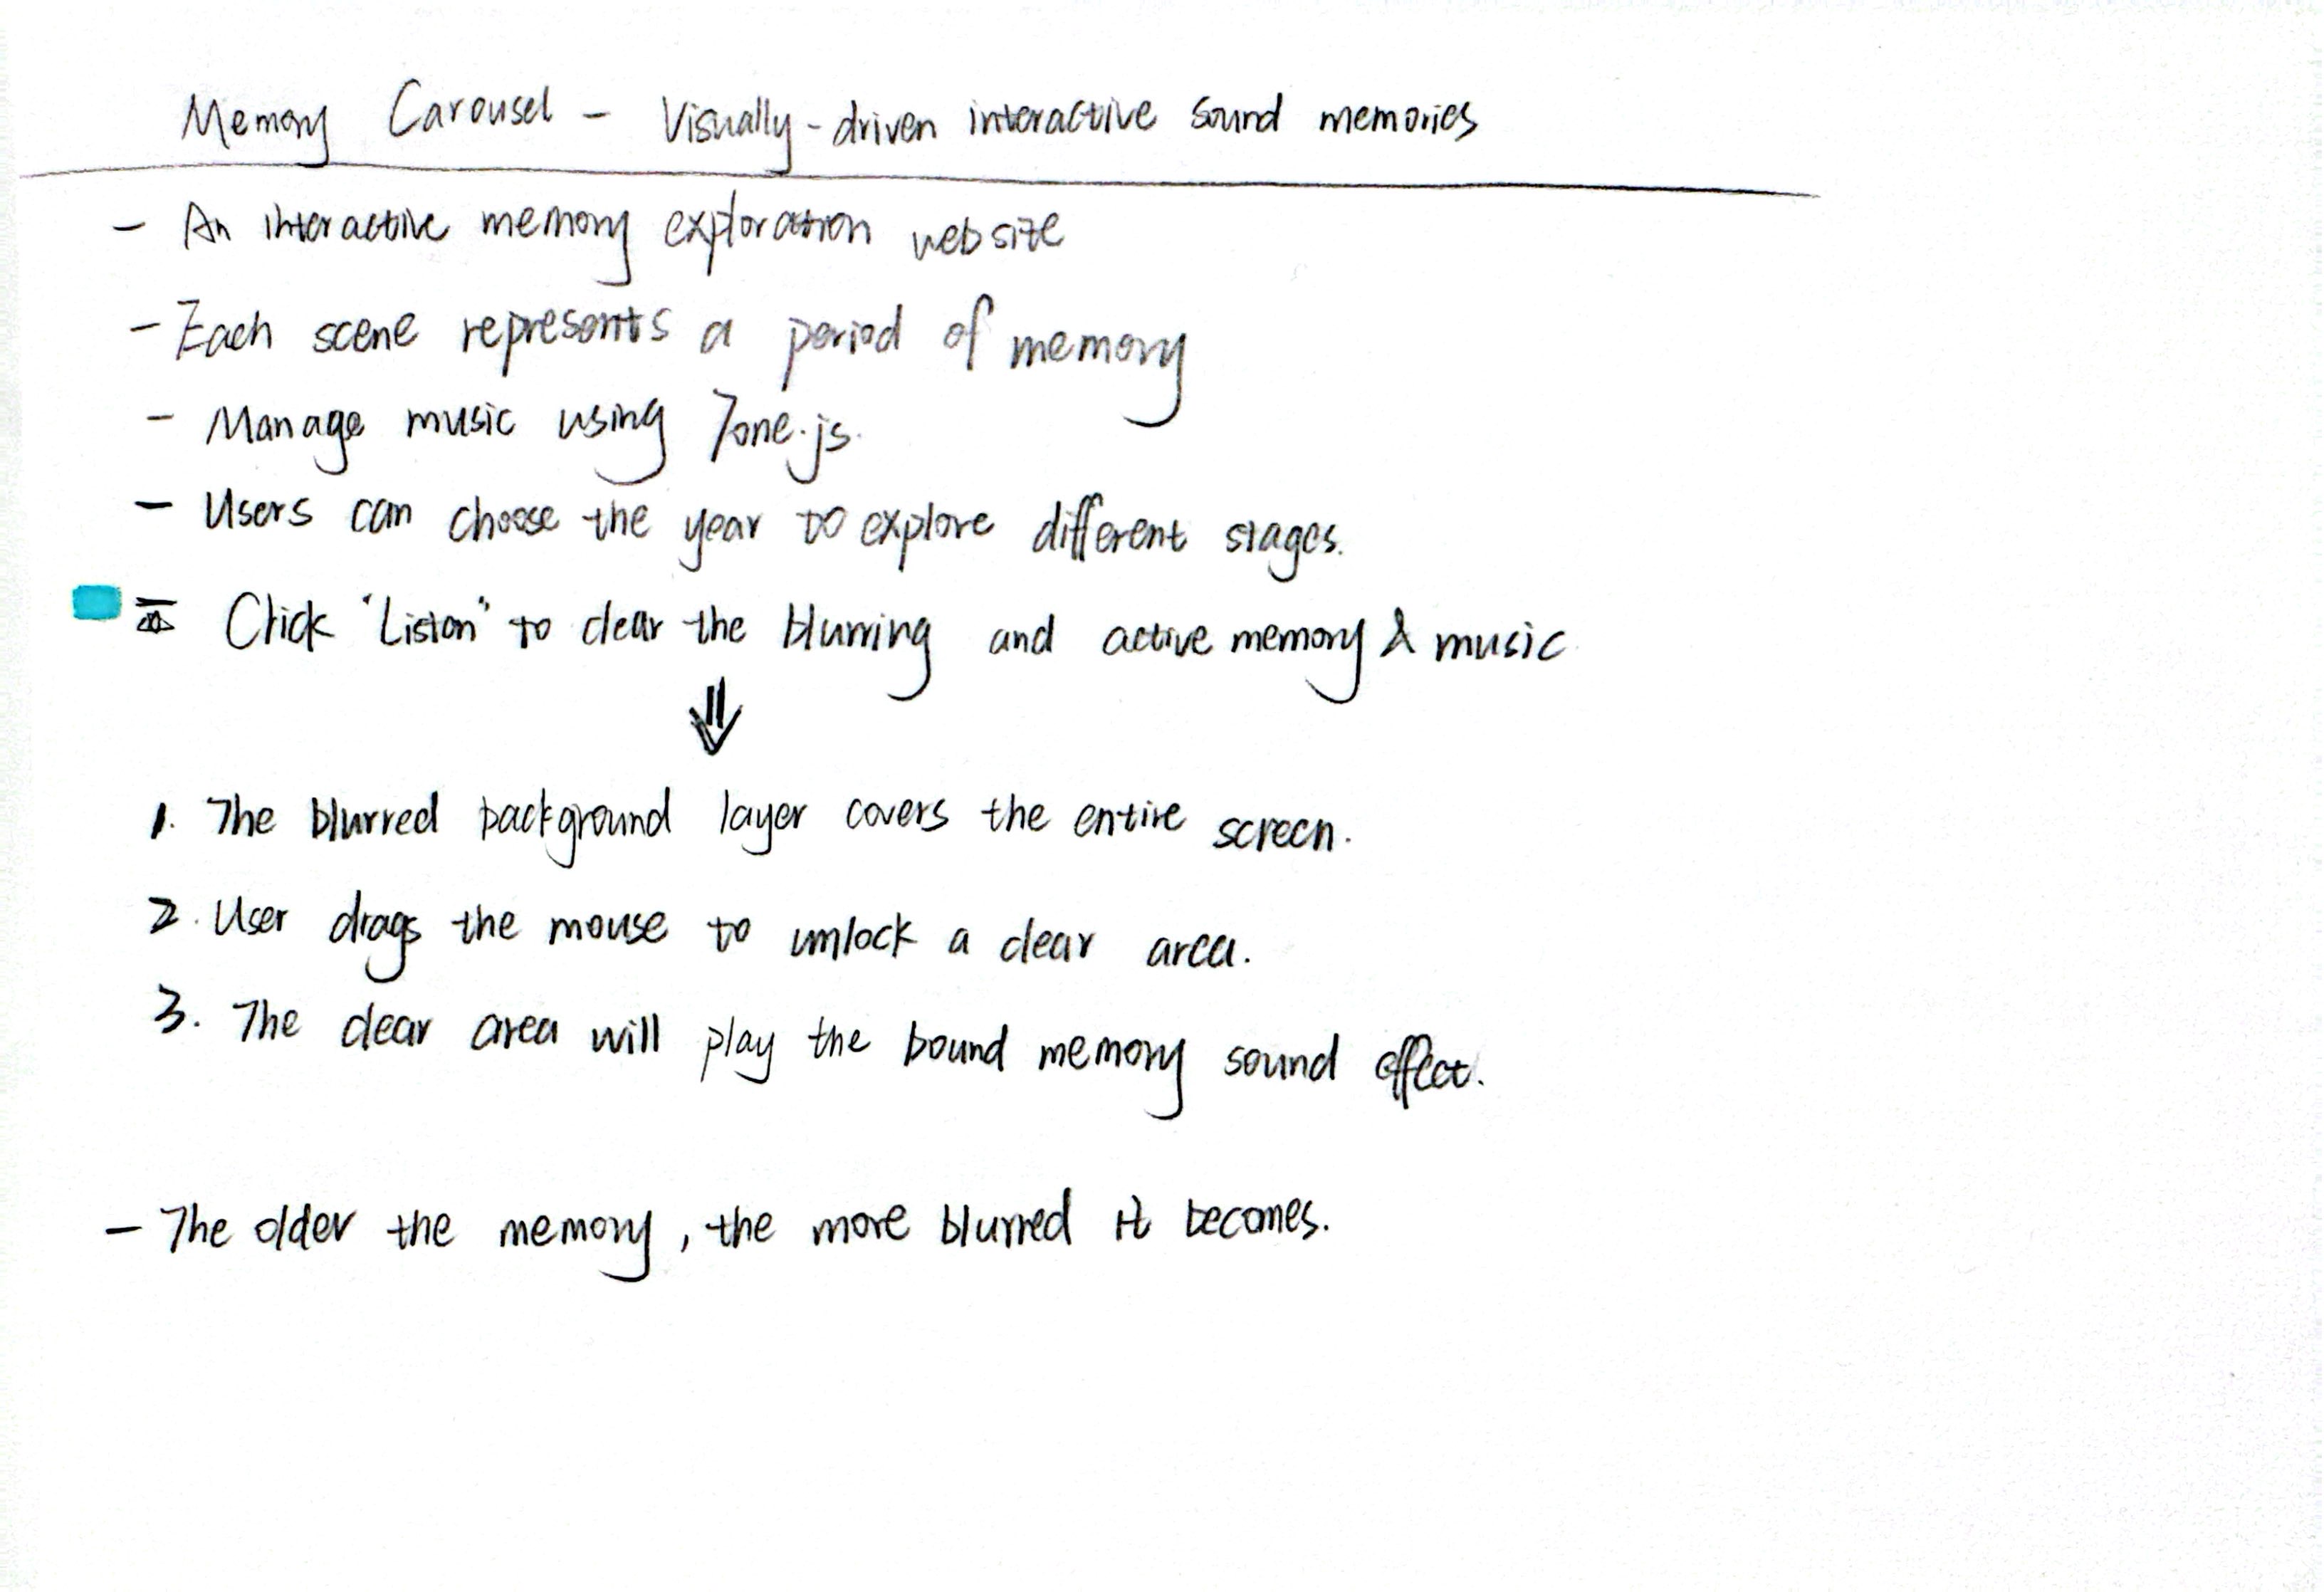 Memory Carousel - Visually-driven interactive sound memories
- An interactive memory exploration website
- Each scene represents a period of memory
- Manage music using Tone.js.
- Users can choose the year to explore different stages.
Click "Listen" to clear the blurring and active memory & music
⇓
1. The blurred background layer covers the entire screen.
2. User drags the mouse to unlock a clear area.
3. The clear area will play the bound memory sound effect.
- The older the memory, the more blurred it becomes.